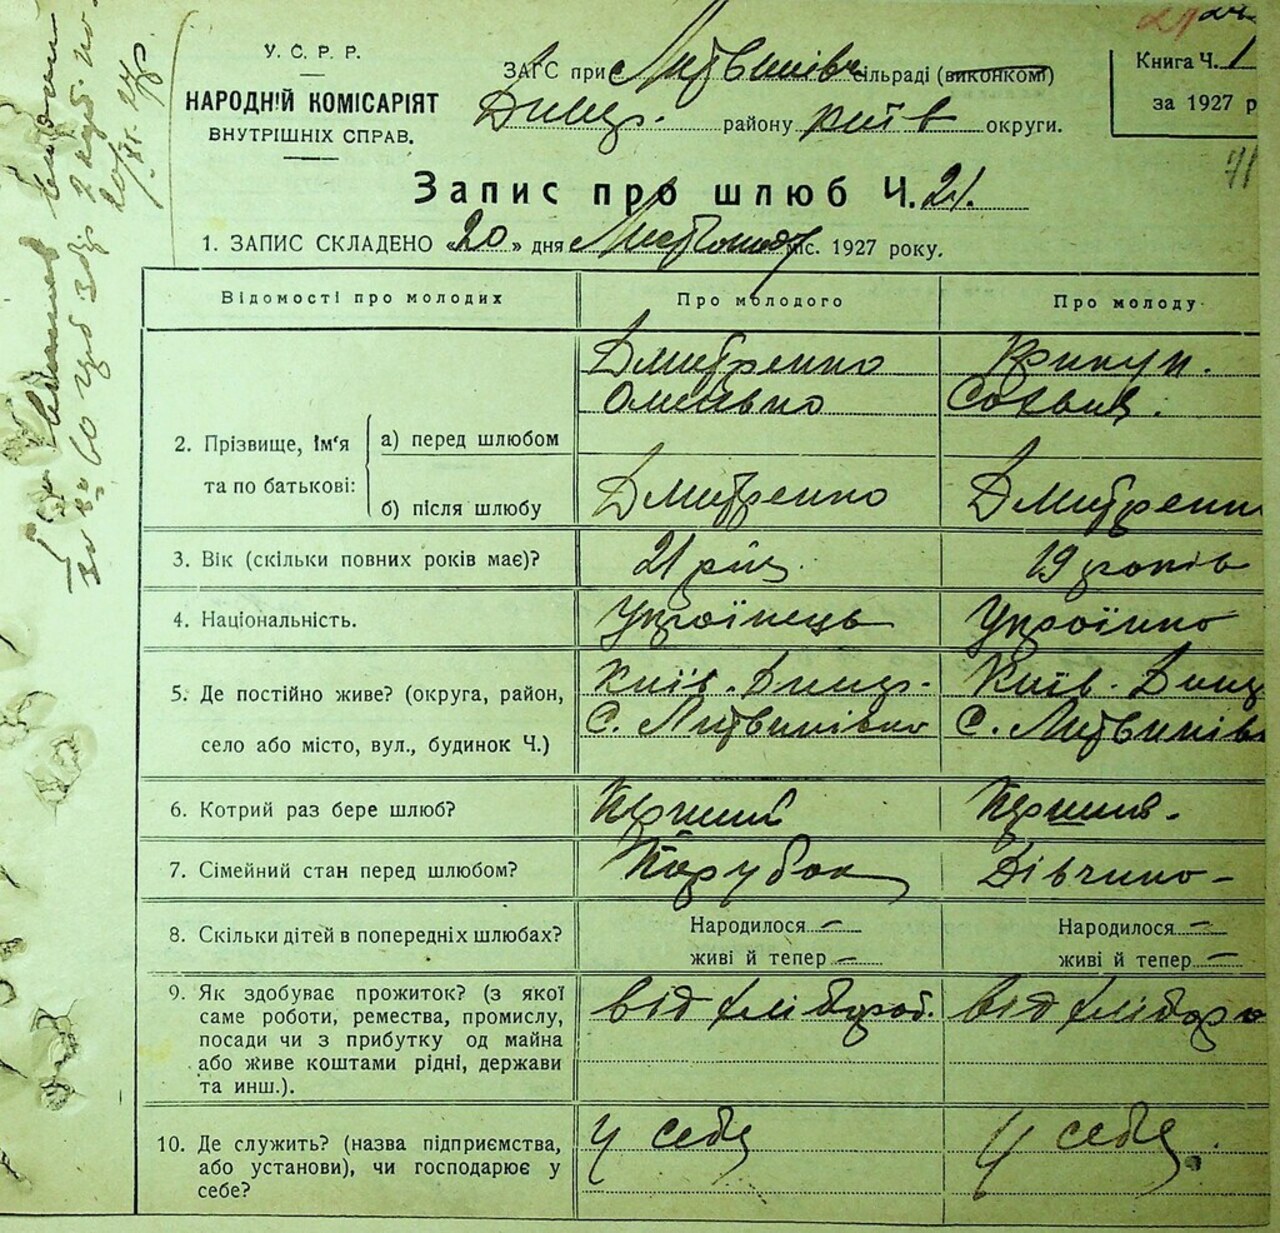 У. С. Р. Р.
НАРОДНІЙ КОМІСАРІЯТ
ВНУТРІШНІХ СПРАВ.
ЗАГС при Литвинівс сільраді (виконкомі)
Димер. району Київ округи.
Книга Ч. 1
за 1927 р
71
Запис про шлюб Ч. 21.
1. ЗАПИС СКЛАДЕНО «20» дня Листопад міс. 1927 року.
Відомості про молодих
Про молодого
Про молоду
2. Прізвище, ім'я
та по батькові:
а) перед шлюбом
Дмитренко
Крикун.
б) після шлюбу
Дмитренко
Дмитренк
3. Вік (скільки повних років має)?
21 рік.
19 років
4. Національність.
Українець
Українка
5. Де постійно живе? (округа, район,
село або місто, вул., будинок Ч.)
Київ. Димер.
с. Литвинівка
Київ. Дим
с. Литвинів
6. Котрий раз бере шлюб?
Перший
Перший.
7. Сімейний стан перед шлюбом?
Парубок
Дівчина
8. Скільки дітей в попередніх шлюбах?
Народилося —
живі й тепер —
Народилося —
живі й тепер —
9. Як здобуває прожиток? (з якої
саме роботи, ремества, промислу,
посади чи з прибутку од майна
або живе коштами рідні, держави
та инш.).
від хлібороб.
від хліборо
10. Де служить? (назва підприємства,
або установи), чи господарює у
себе?
у себе
у себе.